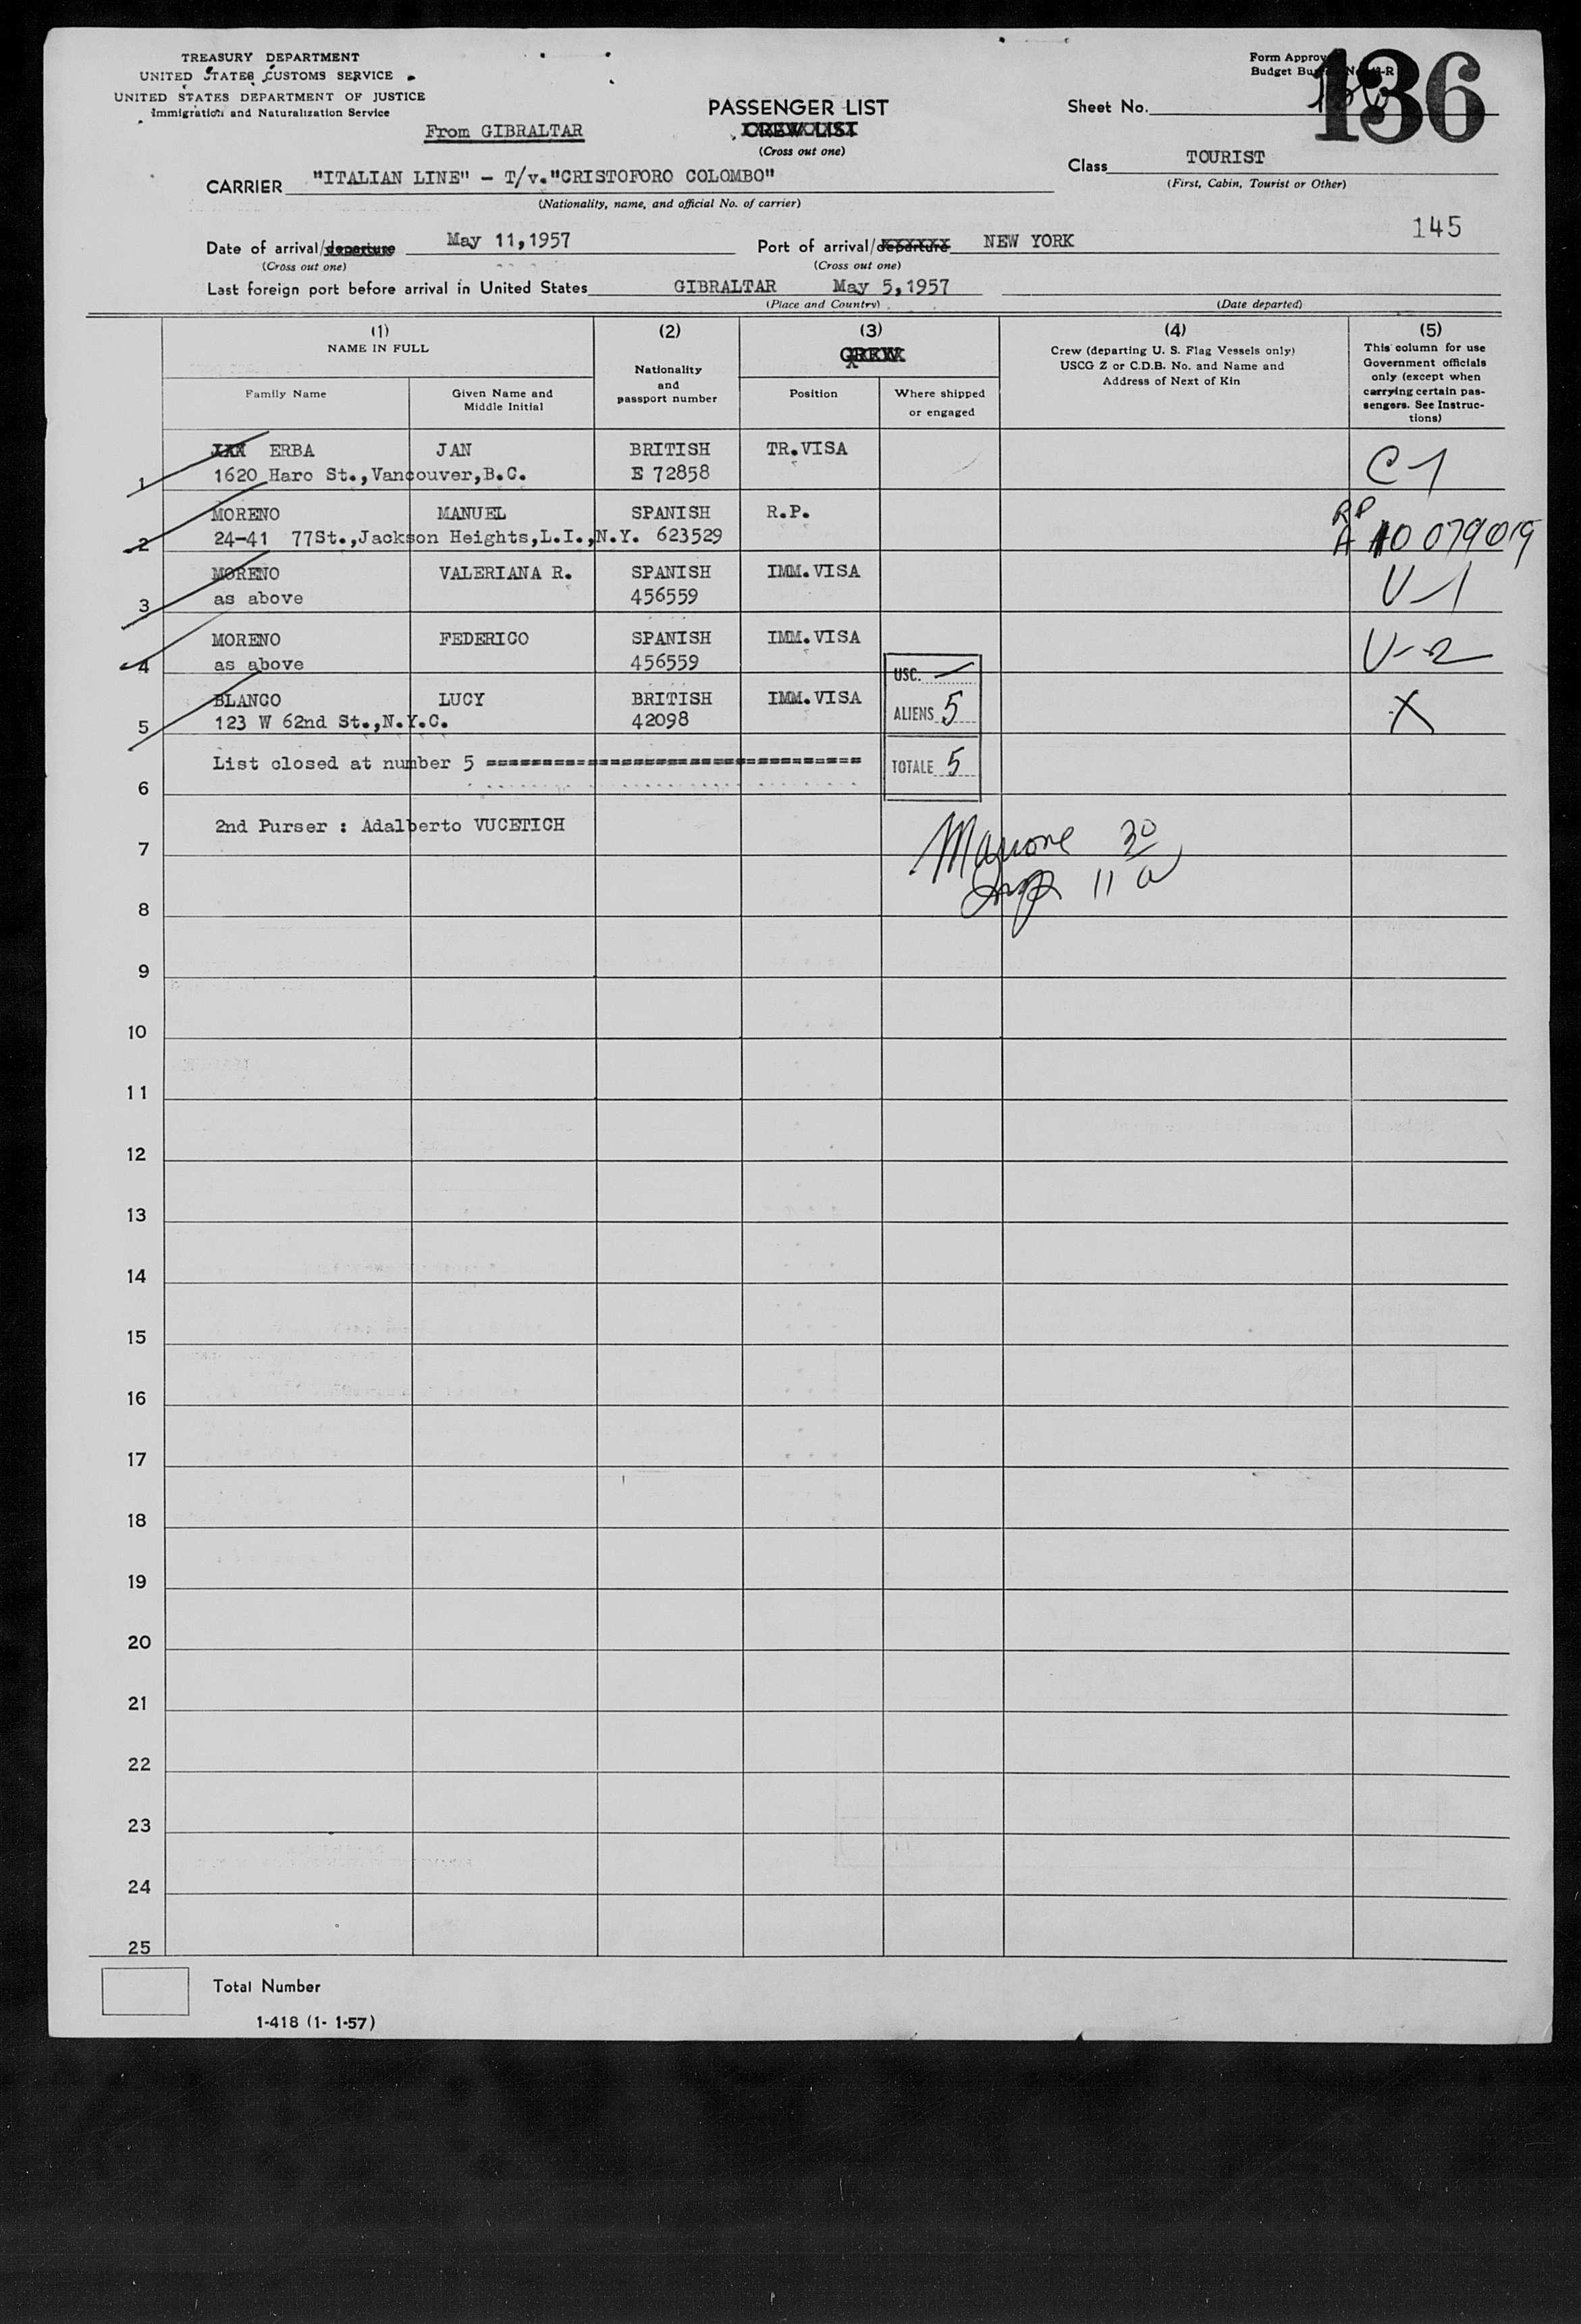 TREASURY DEPARTMENT
UNITED STATES CUSTOMS SERVICE
UNITED STATES DEPARTMENT OF JUSTICE
Immigration and Naturalization Service
From GIBRALTAR
PASSENGER LIST
CREW LIST
(Cross out one)
Form Approv
Budget Bu
136
Sheet No.
Class TOURIST
(First, Cabin, Tourist or Other)
CARRIER "ITALIAN LINE" - T/v."CRISTOFORO COLOMBO"
(Nationality, name, and official No. of carrier)
145
Date of arrival/departure May 11,1957 Port of arrival/departure NEW YORK
(Cross out one) (Cross out one)
Last foreign port before arrival in United States GIBRALTAR May 5,1957
(Place and Country) (Date departed)
(1) (2) (3) (4) (5)
NAME IN FULL
Family Name
Given Name and
Middle Initial
Nationality
and
passport number
CREW
Position
Where shipped
or engaged
Crew (departing U. S. Flag Vessels only)
USCG Z or C.D.B. No. and Name and
Address of Next of Kin
This column for use
Government officials
only (except when
carrying certain pas-
sengers. See Instruc-
tions)
ERBA JAN BRITISH TR.VISA
1 1620 Haro St.,Vancouver,B.C. E 72858 C-1
MORENO MANUEL SPANISH R.P. RP
2 24-41 77St.,Jackson Heights,L.I.,N.Y. 623529 A 10 079019
MORENO VALERIANA R. SPANISH IMM.VISA
3 as above 456559 U-1
MORENO FEDERICO SPANISH IMM.VISA
4 as above 456559 U-2
USC. —
BLANCO LUCY BRITISH IMM.VISA
5 123 W 62nd St.,N.Y.C. 42098 ALIENS 5 X
List closed at number 5 ====================================
6 TOTALE 5
2nd Purser : Adalberto VUCETICH
7
30
11 a
8
9
10
11
12
13
14
15
16
17
18
19
20
21
22
23
24
25
Total Number
1-418 (1- 1-57)